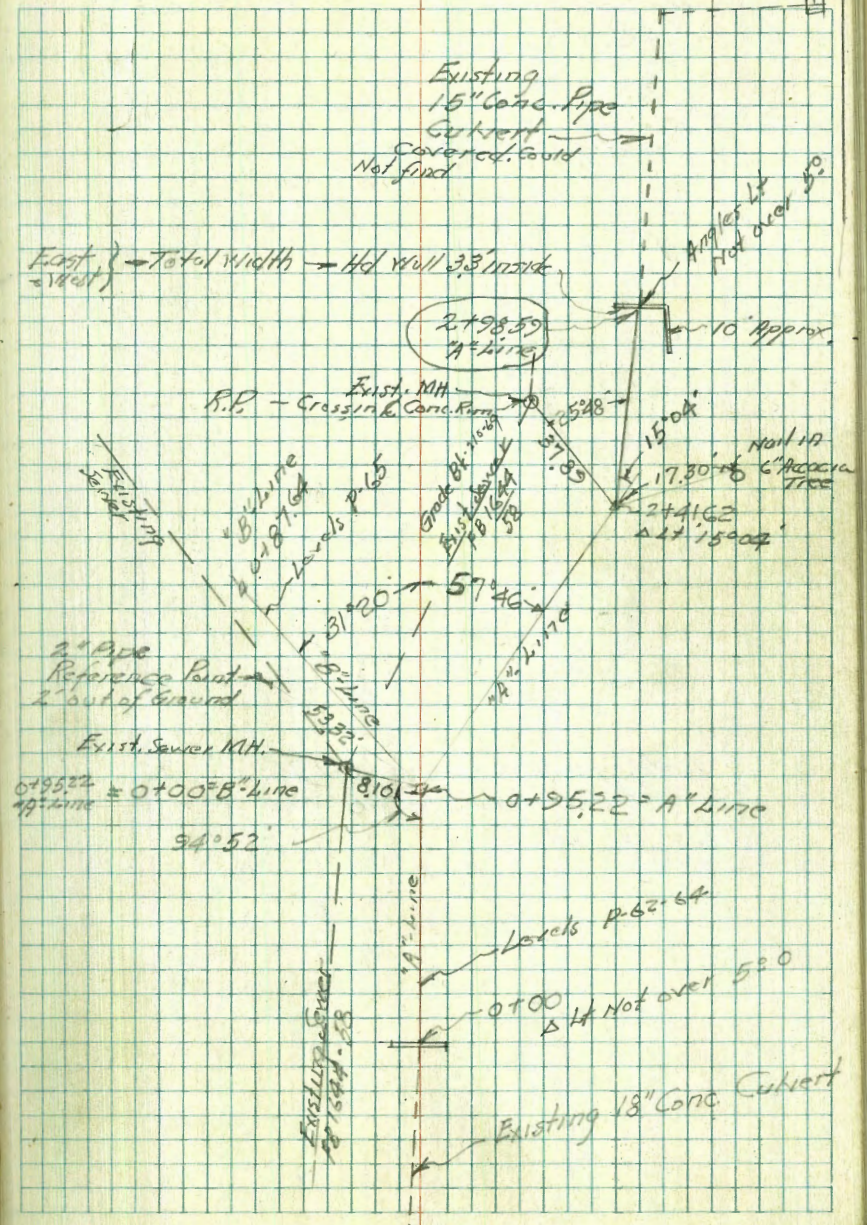 Existing
15" Conc. Pipe
Culvert
Covered. Could
Not find
Angles Lt
Not over 5°
East
West } - Total Width - Hd Wall 3.3' inside
2+98.59
"A"-Line
10' Approx.
Exist. MH
R.P. - Cross in Conc. Rim
25°48'
37.89
15°04'
17.30'
Nail in
6" Acacia
Tree
2+41.62
Δ Lt 15°04'
Existing
Sewer
"B"-Line
0+87.64
Levels p-65
Grade Bk.
Exist. Sewer
FB 1644
58
31°20'
57°46'
"B"-Line
"A"-Line
2" Pipe
Reference Point
2' out of Ground
53.32'
Exist. Sewer M.H.
0+95.22
"A"-Line = 0+00 "B"-Line
8.10
0+95.22 = A" Line
94°52'
"A"-Line
Levels p-62-64
0+00
Δ Lt Not over 5°
Existing Sewer
FB 1644-58
Existing 18" Conc. Culvert